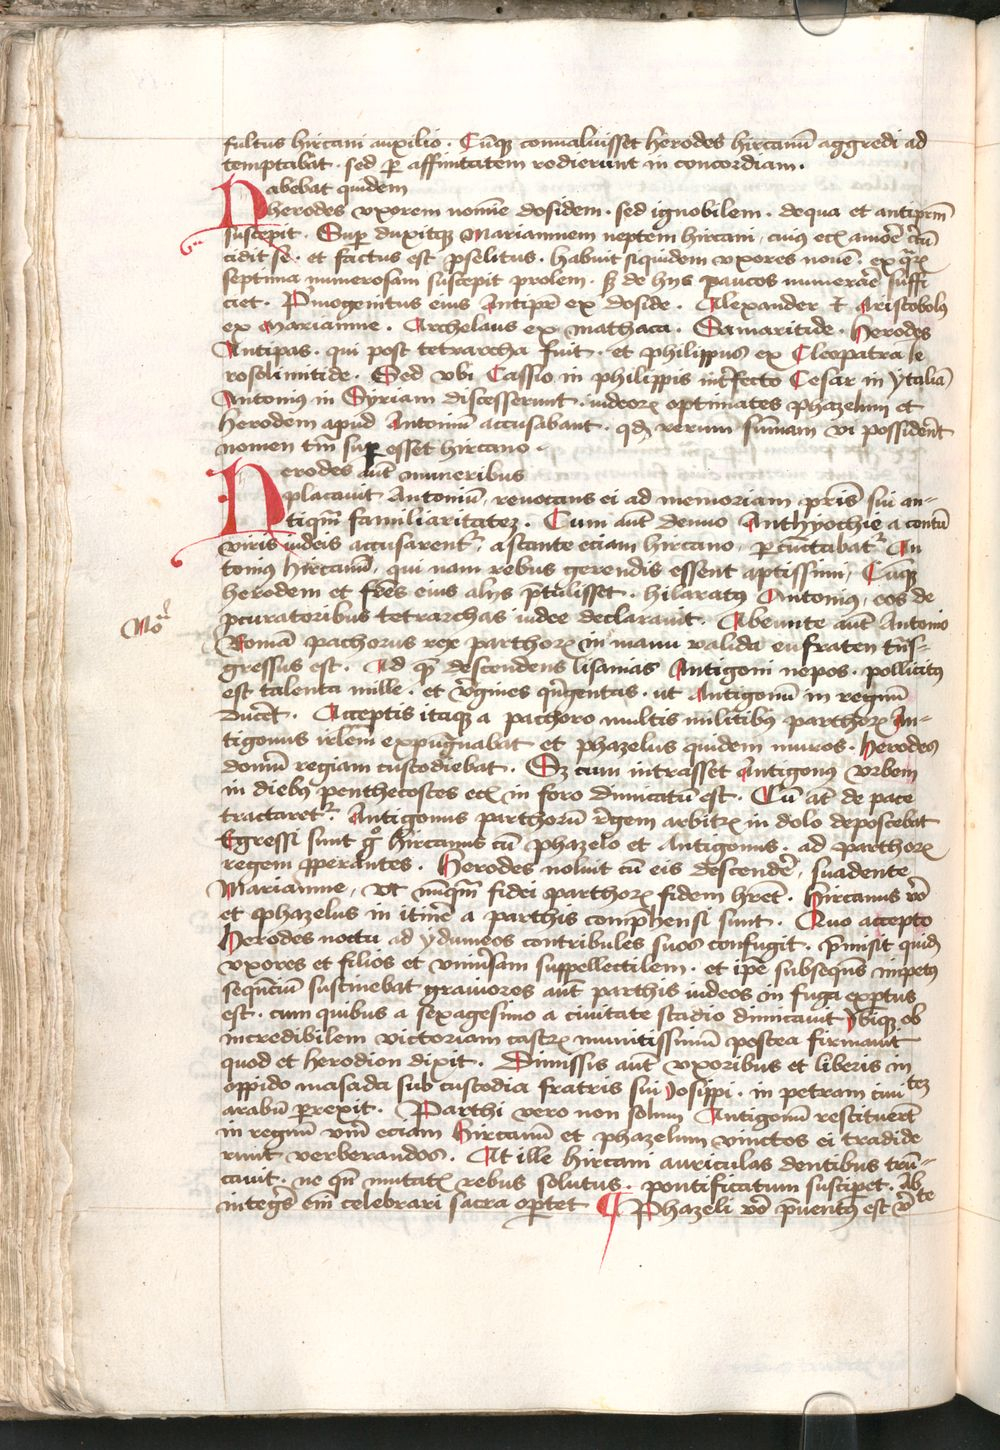 fultus hircani auxilio . Cũq3 conualuisset herodes hircanũ aggredi ad
temptabat . sed p̱ affinitatem rodierunt in concordiam .
Habebat quidem
herodes vxorem nomĩe dosidem . sed ignobilem . de qua et antiprm̃
suscepit . Sup̱ duxitq3 Mariannem neptem hircani , cuius ec̃ amõe
cidit se . et factus est p̱selitus . habuit siquidem vxores nouẽ . ex
septima numerosam suscepit prolem . s3 de hijs paucos numerare suffi
ciet . Pmogenitus eius Antipr̃ ex doside . Alexander et Aristobolus
ex Marianne . Archelaus ex mathaca . Samaritide . herodes
Antipas . qui post tetrarcha fuit . et philippus ex Cleopatra Ie
rosolimitide . Sed vbi Cassio in philippis int̃fecto Cesar in ytaliã
Antonius in Syriam discesserunt . iudeorꝝ optimates phazelum et
herodem apud Antoniũ accusabant . qđ rerum sũmam vi possident̃
nomen tm̃ sup̱ esset hircano .
Herodes aut̃ muneribus
placauit Antoniũ , reuocans ei ad memoriam pr̃is sui an-
tiqm̃ familiaritate3 . Cum aut̃ denuo Anthyochie a centũ
viris iudeis accusarent̃ , astante eciam hircano , p̱cunctabat̃ An
tonius hircanũ , qui nam rebus gerendis essent aptissimi , Cũq3
herodem et frẽs eius alijs p̃tulisset . hilaratus Antonius , eos de
p̱curatoribus tetrarchas iudee declarauit . Abeunte aut̃ Antonio
Romã pachorus rex parthorꝝ in manu valida eufraten tñs-
gressus est . Ad q̃ descendens lisanias Antigoni nepos . pollicitus
est talenta mille . et v̑gines qñgentas . ut Antigonũ in regnũ
ducẽt . Acceptis itaq3 a pachoro multis militibus parthorꝝ An-
tigonus irl̃em expugnabat et phazelus quidem muros . herodes
domũ regiam custodiebat . S3 cum intrasset Antigonus vrbem
in diebus penthecostes ec̃ in foro dimicatũ est . Cũ at̃ de pace
tractaret̃ . Antigonus parthorũ regem arbitrꝝ in dolo deposcebat
Egressi sunt gͦ hircanus cũ phazelo et Antigonus . ad parthorꝝ
regem p̱perantes . Herodes noluit cũ eis descendẽ , suadente
Marianne , vt nũqm̃ fidei parthorꝝ fidem hr̃et . Hircanus vͦo
et phazelus in itinẽ a parthis comp̃hensi sunt . Quo accepto
herodes noctu ad ydumeos contribules suos confugit . p̃misit quid
vxores et filios et vniũsam suppellectilem . et ip̃e subsequẽs impetus
sequẽciũ sustinebat grauiores aut̃ parthis iudeos in fuga exp̱tus
est . cum quibus a sexagesimo a ciuitate stadio dimicauit ybiq3 ob
incredibilem victoriam castrꝝ munitissimũ postea firmauit
quod et herodion dixit . Dimissis aut̃ vxoribus et liberis in
oppido masada sub custodia fratris sui Iosippi . in petram ciuite3
arabũ p̱rexit . Parthi vero non solum Antigonũ restituert̃
in regnũ vm̃ eciam Hircanũ et phazelum vinctos ei tradide
runt verberandos . At ille hircani auriculas dentibus trũ-
cauit . ne qñ mutatꝝ rebus solutus . pontificatum suscip̱et . Ab
integrͥs em̃ celebrari sacra op̱tet ¶ Phazeli vͦo p̃uentus est